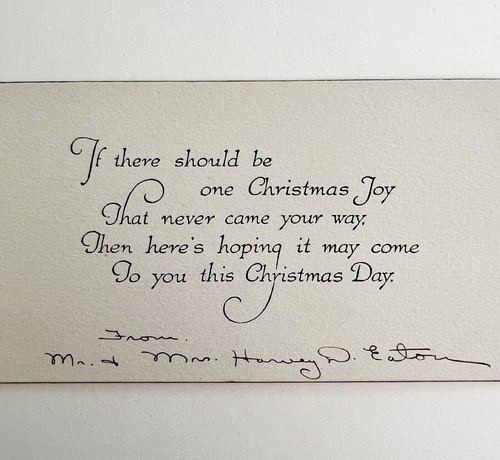 If there should be
one Christmas Joy
That never came your way,
Then here's hoping it may come
To you this Christmas Day.
From.
Mr. & Mrs. Harvey D. Eaton